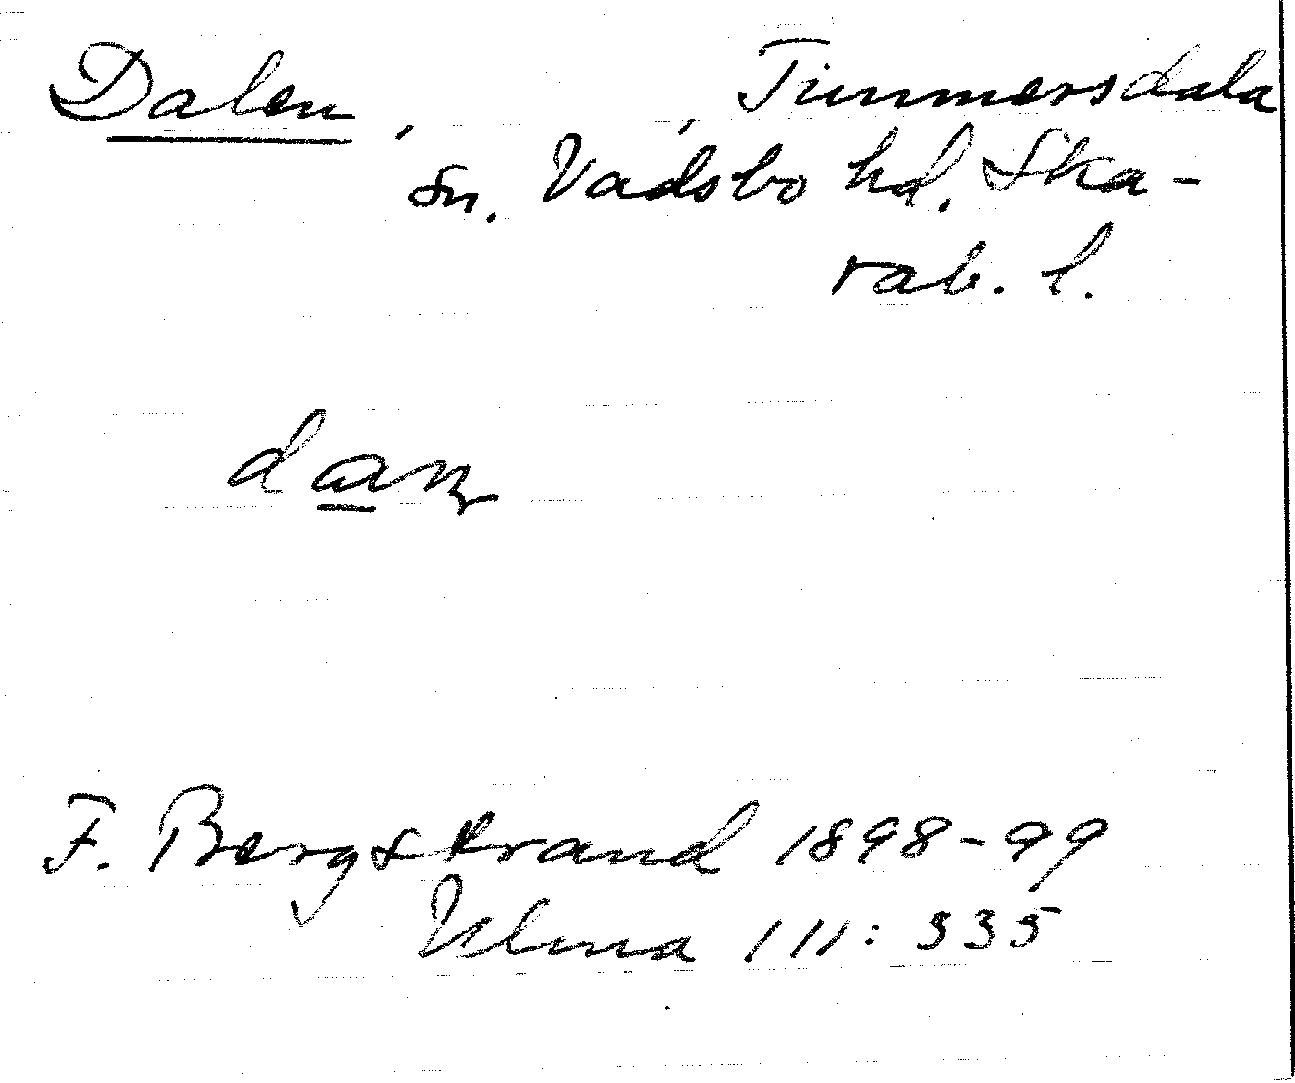 Dalen, , Timmersdala
sn. Vadsbo hd. Ska-
rab. l.
dan
F. Bergstrand 1898-99
Ulma 111: 335